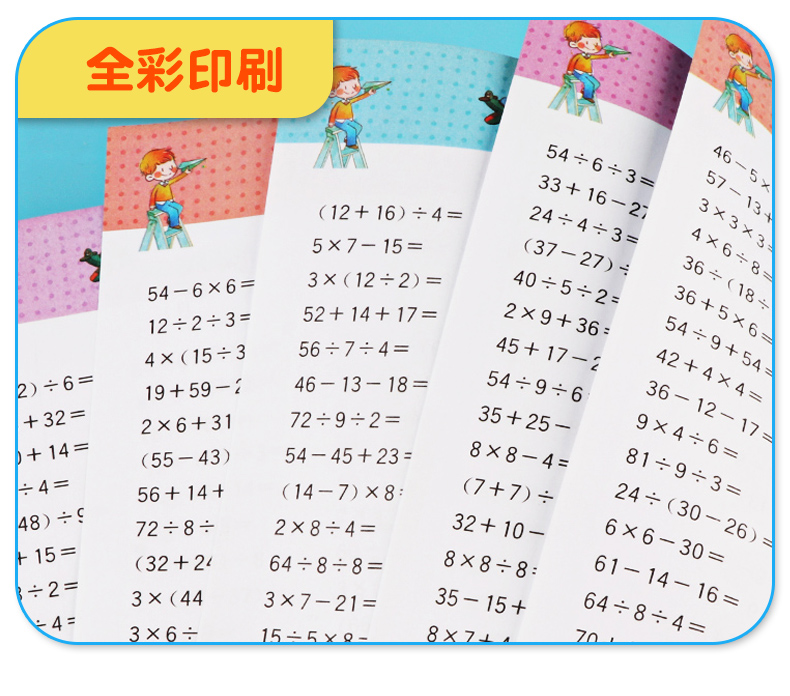 全彩印刷
2)÷6=
+32=
+14=
÷4=
48)÷9
+15=
÷2=
÷4=
54-6×6=
12÷2÷3=
4×(15÷3
19+59-2
2×6+31
(55-43)
56+14+
72÷8÷
(32+24
3×(44
3×6÷
(12+16)÷4=
5×7-15=
3×(12÷2)=
52+14+17=
56÷7÷4=
46-13-18=
72÷9÷2=
54-45+23=
(14-7)×8
2×8÷4=
64÷8÷8=
3×7-21=
15÷5×8=
54÷6÷3=
33+16-27
24÷4÷3=
(37-27)÷
40÷5÷2=
2×9+36=
45+17-2
54÷9÷6
35+25-
8×8-4=
(7+7)÷
32+10-
8×8÷8=
35-15+
8×7+4
46-5×
57-13+
3×3×3=
4×6÷8=
36÷(18÷
36+5×6=
54÷9+54=
42+4×4=
36-12-17=
9×4÷6=
81÷9÷3=
24÷(30-26)=
6×6-30=
61-14-16=
64÷8÷4=
70+